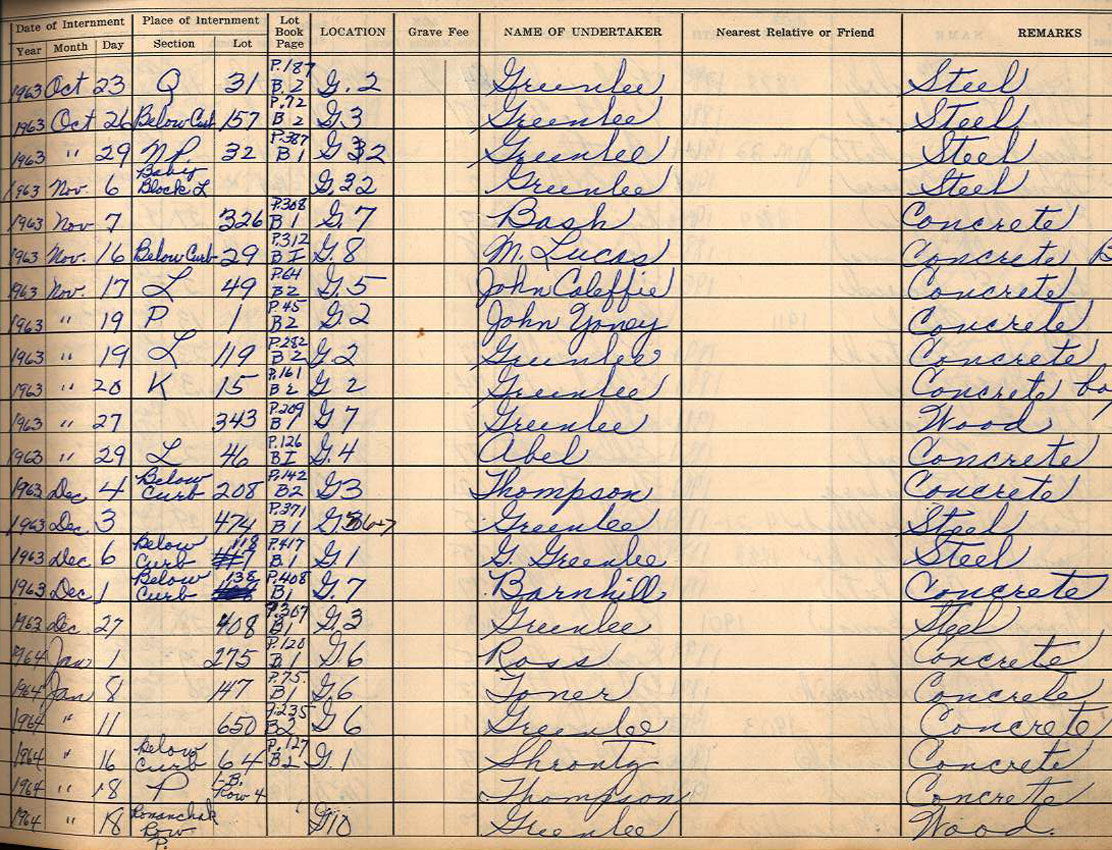 Date of Internment Place of Internment Lot Book Page LOCATION Grave Fee NAME OF UNDERTAKER Nearest Relative or Friend REMARKS
Year Month Day Section Lot
1963 Oct 23 Q 31 P.187 B.2 G.2 Greenlee Steel
1963 Oct 26 Below Curb 157 P.72 B 2 G.3 Greenlee Steel
1963 " 29 N.P. 32 P.387 B 1 G 32 Greenlee Steel
1963 Nov. 6 Baby Block L G.32 Greenlee Steel
1963 Nov 7 326 P.308 B 1 G.7 Bash Concrete
1963 Nov. 16 Below Curb 29 P.312 B I G.8 M. Lucas Concrete B
1963 Nov. 17 L 49 P.64 B2 G.5 John Coleffie Concrete
1963 " 19 P 1 P.45 B2 G.2 John Yoney Concrete
1963 " 19 L 119 P.282 B 2 G.2 Greenlee Concrete
1963 " 20 K 15 P.161 B 2 G 2 Greenlee Concrete bo
1963 " 27 343 P.209 B 1 G 7 Greenlee Wood
1963 " 29 L 46 P.126 B I G.4 Abel Concrete
1963 Dec 4 Below Curb 208 P.142 B2 G3 Thompson Concrete
1963 Dec. 3 474 P.371 B 1 G 6+7 Greenlee Steel
1963 Dec 6 Below Curb 118 P.417 B 1 G.1 G. Greenlee Steel
1963 Dec 1 Below Curb 138 P.408 B1 G.7 Barnhill Concrete
1963 Dec. 27 408 P.307 B1 G.3 Greenlee Steel
1964 Jan 1 275 P.120 B 1 G 6 Ross Concrete
1964 Jan 8 147 P.75. B 1 G.6 Toner Concrete
1964 " 11 650 P.235 B2 G 6 Greenlee Concrete
1964 " 16 Below Curb 64 P.127 B2 G.1 Shrontz Concrete
1964 " 18 P L.B. Row 4 Thompson Concrete
1964 " 18 Romanchak Row P. G10 Greenlee Wood.